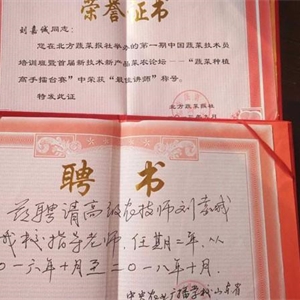 荣誉证书
刘嘉诚同志：
您在北方蔬菜报社举办的第一期中国蔬菜技术员
培训班暨首届新技术新产品菜农论坛——“蔬菜种植
高手擂台赛”中荣获“最佳讲师”称号。
特发此证
北方蔬菜报社
聘书
兹聘请高级农技师刘嘉诚
我校指导老师，任期二年，从
〇一六年十月至二〇一八年十月。
中央农业广播学校山东省